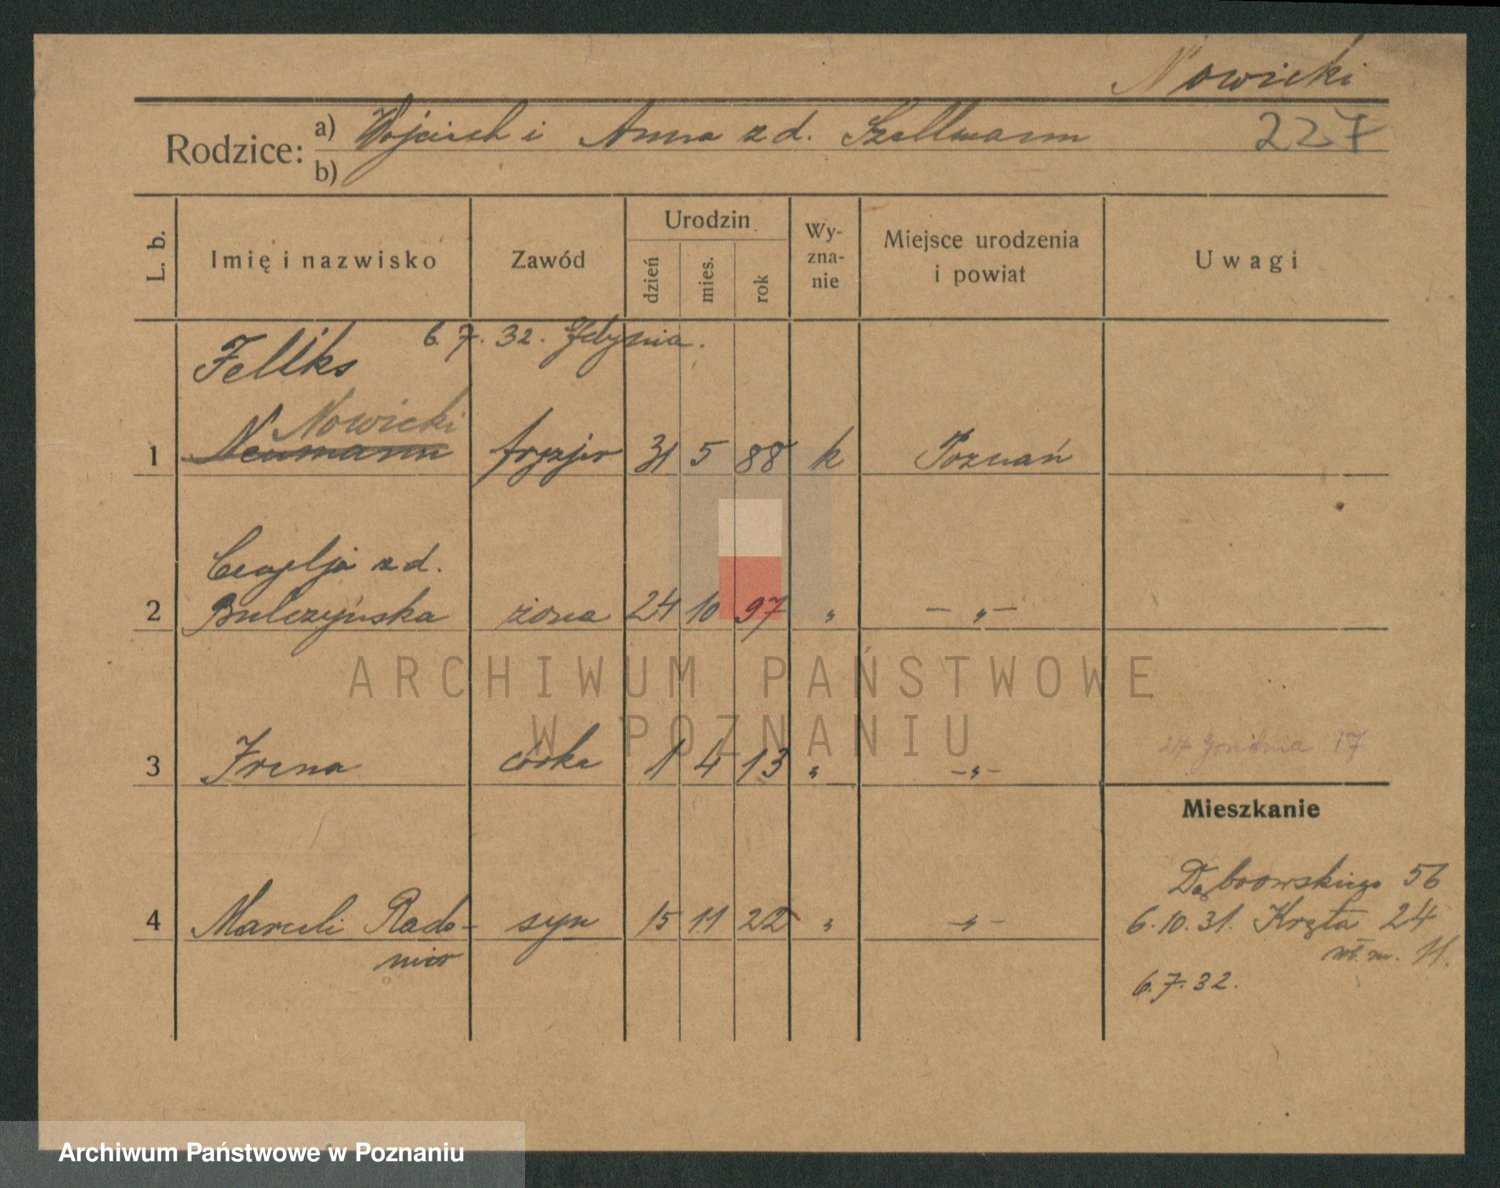 Nowicki
Rodzice: a) Wojciech i Anna z d. Szellmann 227
b)
L. b. Imię i nazwisko Zawód Urodzin dzień mies. rok Wy-zna-nie Miejsce urodzenia i powiat Uwagi
6.7.32. Gdynia.
Feliks
Nowicki
1 Neumann fryzjer 31 5 88 k Poznań
z d.
2 Bulczyńska żona 24 10 97 " — " —
3 Irena córka 1 4 13 " — " — 24 Grudnia 17
Mieszkanie
Dąbrowskiego 56
4 Marceli Rado- syn 15 11 22 " — " — 6.10.31. Kręta 24
mier m. 11.
6.7.32.
ARCHIWUM PAŃSTWOWE
W POZNANIU
Archiwum Państwowe w Poznaniu